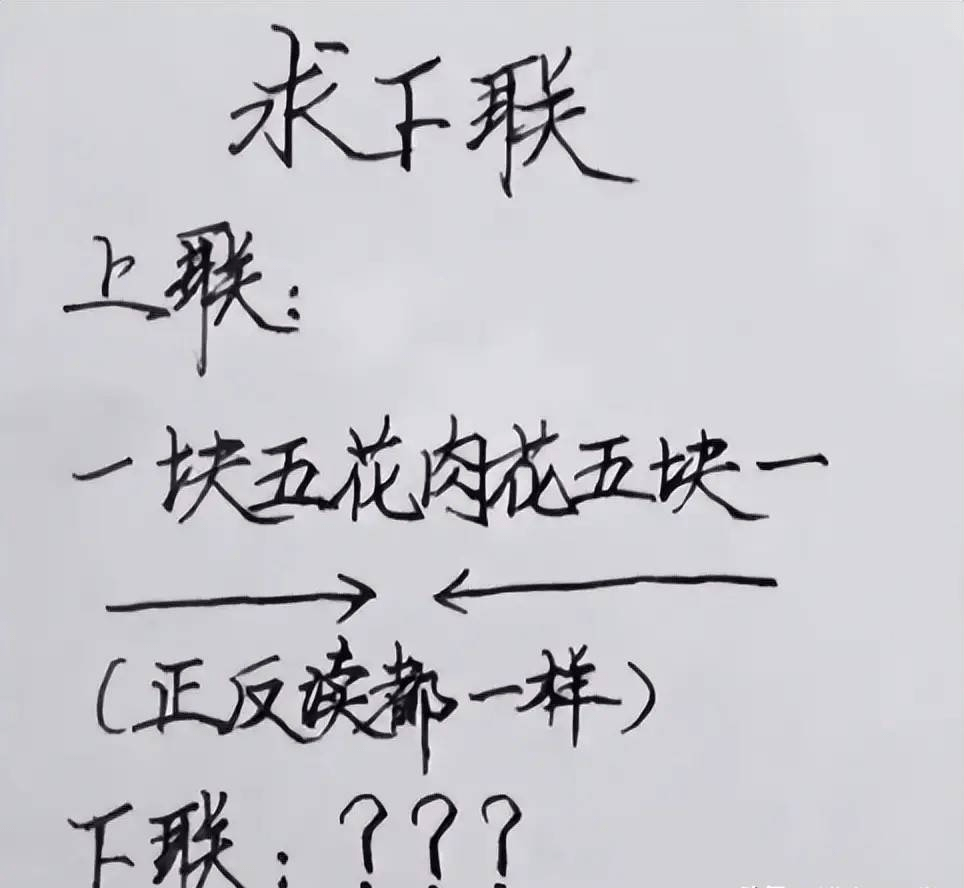 求下联
上联：
一块五花肉花五块一
（正反读都一样）
下联：？？？